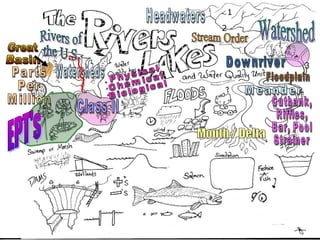 The
Rivers
Lakes
and Water Quality Unit
Headwaters
Stream Order
1
2
3
Watershed
Rivers of
the U.S.
Great
Basin
Parts
Per
Million
Watersheds
Water
Quality
Physical
Chemical
Biological
Class II
EPT's
Downriver
Floodplain
Meander
Cutbank,
Riffles,
Bar, Pool
Strainer
FLOODS
Mouth / Delta
Swamp or Marsh
Wetlands
DAMS
+'s
-'s
Simulation
Salmon
Fashion
a
Fish